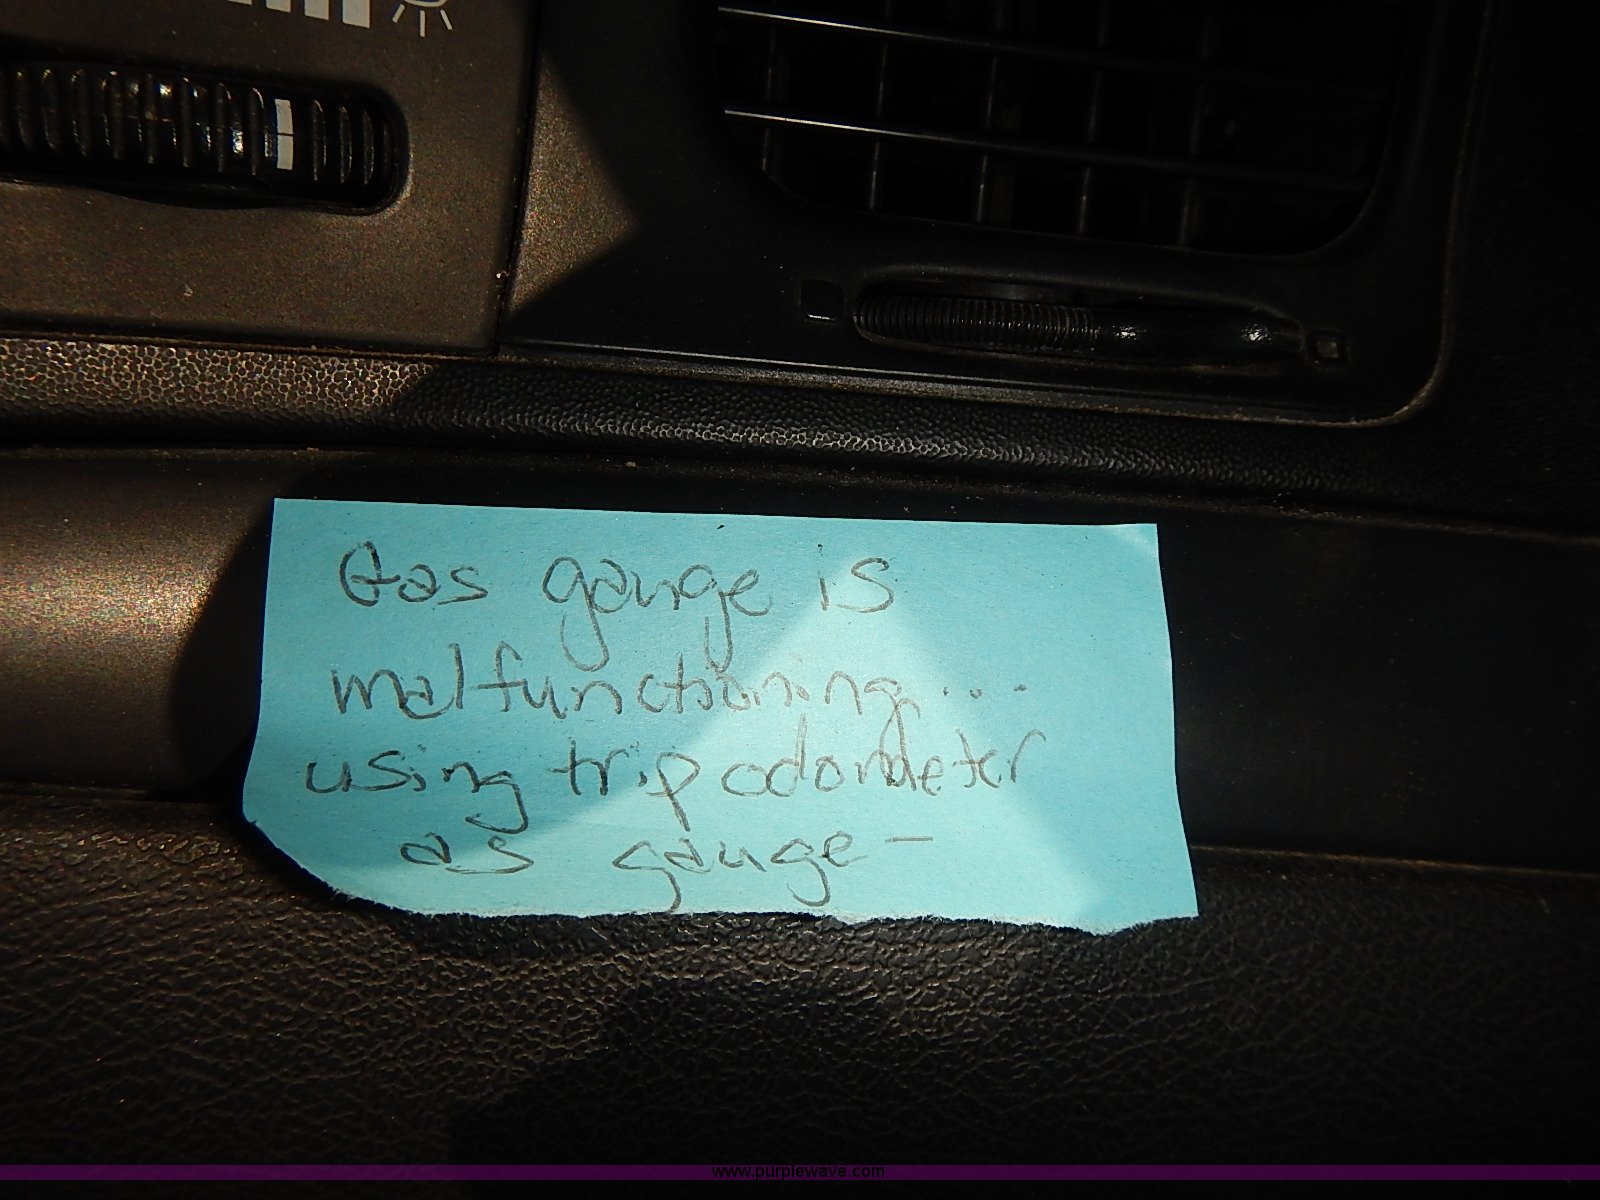 Gas gauge is
malfunctioning...
using trip odometer
as gauge-
www.purplewave.com